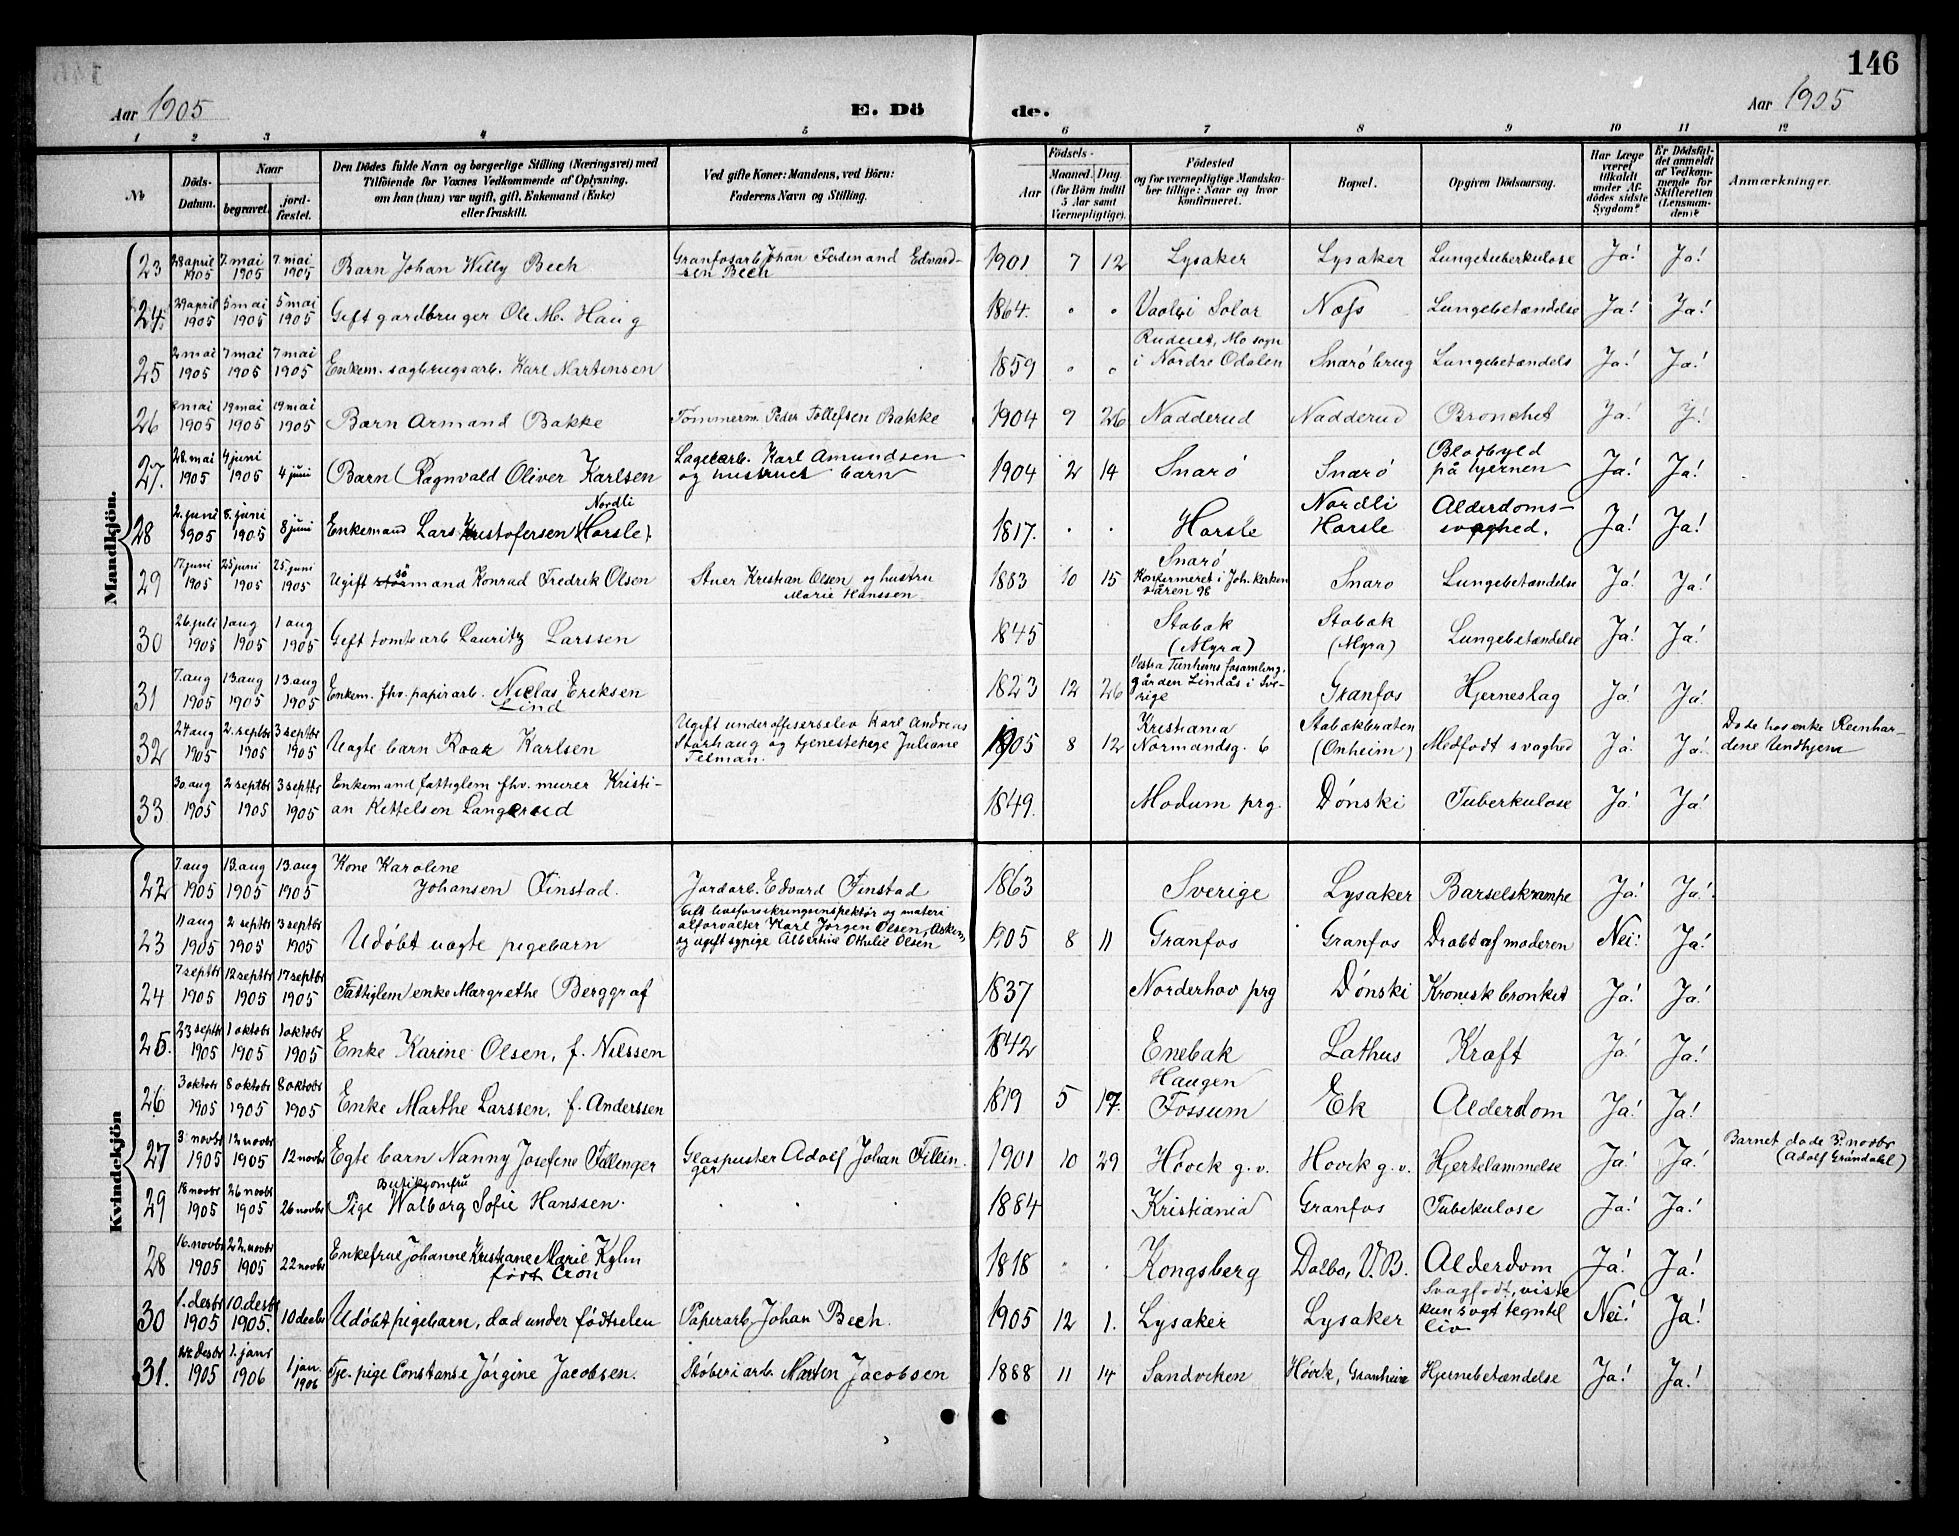 146
Aar 1905
E. Dö de.
Aar 1905
1 2 3 4 5 6 7 8 9 10 11 12
No
Döds-Datum.
Naar
begravet.
jord-fæstet.
Den Dödes fulde Navn og borgerlige Stilling (Næringsvei) med
Tilföiende for Voxnes Vedkommende af Oplysning,
om han (hun) var ugift, gift, Enkemand (Enke)
eller fraskilt.
Ved gifte Koner: Mandens, ved Börn:
Faderens Navn og Stilling.
Födsels-
Aar
Maaned. Dag.
(for Börn indtil
5 Aar samt
Værnepligtige).
Födested
og for værnepligtige Mandska-
ber tillige: Naar og hvor
konfirmeret.
Bopæl.
Opgiven Dödsaarsag.
Har Læge
været
tilkaldt
under Af-
dödes sidste
Sygdom?
Er Dödsfal-
det anmeldt
af Vedkom-
mende for
Skifteretten
(Lensman-
den)?
Anmærkninger.
Mandkjön.
23 28 april 1905 7. mai 1905 7. mai 1905 Barn Johan Willy Bech Granfosarb. Johan Ferdinand Edvard-sen Bech 1901 7 12 Lysaker Lysaker Lungetuberkulose Ja! Ja!
24 29 april 1905 5 mai 1905 5 mai 1905 Gift gardbruger Ole M. Haug 1864. " " Vaaler i Solør Næss Lungebetændelse Ja! Ja!
25 2 mai 1905 7 mai 1905 7 mai 1905 Enkem. sagbrugsarb. Karl Martinsen 1859 " " Ruderet, Mo sogn i Nordre Odalen Snarøbrug Lungebetændels Ja! Ja!
26 mai 1905 19 mai 1905 19 mai 1905 Barn Armand Bakke Tømmerm. Peder Tollefsen Bakke 1904 9 26 Nadderud Nadderud Bronchit Ja! J!
27. 28. mai 1905 4 juni 1905 4 juni Barn Ragnvald Oliver Karlsen Lagerarb. Karl Amundsen og hustrues barn 1904 2 14 Snarø Snarø Blodbyld på hjernen Ja! Ja!
28 2. juni 1905 8. juni 1905 8 juni Enkemand Lars Kristofersen Nordli (Horsle). 1817. . . Horsle Nordli Horsle Alderdoms-svaghed. Ja! Ja!
29 17. juni 1905 25 juni 1905 25. juni 1905 Ugift sømand Konrad Fredrik Olsen Stuer Kristian Olsen og hustru Marie Hanssen 1883 10 15 Snarø Konfirmeret i Joh. kirken våren 98 Snarø Lungebetændelse Ja! Ja!
30 26 juli 1905 1 aug 1905 1 aug 1905 Gift tomtearb Lauritz Larssen 1845 Stabæk (Myra) Stabæk (Myra) Lungebetændelse Ja! Ja!
31 7. aug 1905 13 aug 1905 13. aug 1905 Enkem. fhv. papirarb. Niclas Eriksen Lind 1823 12 26 Vestra Tunhems fosamling, gården Lindås i Sve-rige Granfos Hjerneslag Ja! Ja!
32 24 aug 1905 2. septbr 1905 3 septbr 1905 Uægte barn Roar Karlsen Ugift underoffisers elev Karl Andreas Storhaug og tjenestepige Juliane Telman. 1905 8 12 Kristiania Normandsg. 6 Stabækbraaten (Onheim) Medfødt svaghed Ja! Ja! Døde hos enke Reinhar-dene Undhjem
33 30 aug 1905 2 septbr 1905 3 septbr 1905 Enkemand fattiglem fhv. murer Kristi-an Kettelsen Langerud 1849. Modum prg. Dønski Tuberkulose Ja! Ja!
Kvindekjön
22 7. aug 1905 13 aug 1905 13. aug 1905 Kone Karoline Johansen Finstad. Jordarb. Edvard Finstad 1863 Sverige Lysaker Barselskrampe Ja! Ja!
23 11 aug 1905 2 septbr 1905 3 septbr 1905 Udøbt uægte pigebarn Gift livsforsikringsinspektør og materi alforvalter Karl Jørgen Olsen, Asker, og ugift sypige Albertine Othilie Olsen 1905 8 11 Granfos Granfos Dræbt af moderen Nei! Ja!
24 7 septbr 1905 12 septbr 1905 17 septbr 1905 Fattiglem enke Margrethe Berggraf 1837 Norderhov prg Dønski Kronisk bronkit Ja! Ja!
25. 23 septbr 1905 1 oktobr 1905 1 oktobr 1905 Enke Karine Olsen, f. Nilssen 1842 Enebak Løthus Kræft Ja! Ja!
26 3 oktobr 1905 8 oktobr 1905 8 oktobr 1905 Enke Marthe Larssen, f. Anderssen 1819 5 17. Haugen Fossum Ek Alderdom Ja! Ja!
27 3. novbr 1905 12 novbr 1905 12 novbr Egte barn Nanny Josefine Fillinger Glaspuster Adolf Johan Fillin-ger 1901 10 29 Høvik g.v. Høvik g.v. Hjertelammelse Ja! Ja! Barnet døde 3. novbr (Adolf Grøndahl)
29 18 novbr 1905 26 novbr 1905 26 novbr Pige Butikjomfru Walborg Sofie Hanssen. . . 1884 Kristiania Granfos Tubekulose Ja! Ja!
28 16. novbr 1905 22. novbr 1905 22 novbr Enkefrue Johanne Kristiane Marie Kylm født Cron 1818 . . Kongsberg Dalbo, V.B. Alderdom Ja! Ja!
30 1. desbr 1905 10. desbr 1905. 10 desbr Udøbt pigebarn, død under fødselen Papirarb. Johan Bech. 1905 12 1. Lysaker Lysaker Svagfødt, viste kun svagt tegn til liv Nei! Ja!
31. desbr 1905 1. janr 1906 1 jan. 1906 Tje. pige Constanse Jørgine Jacobsen. Støberiarb. Morten Jacobsen 1888 11 14 Sandviken Høvik, Granheim Hjernebetændelse Ja! Ja!